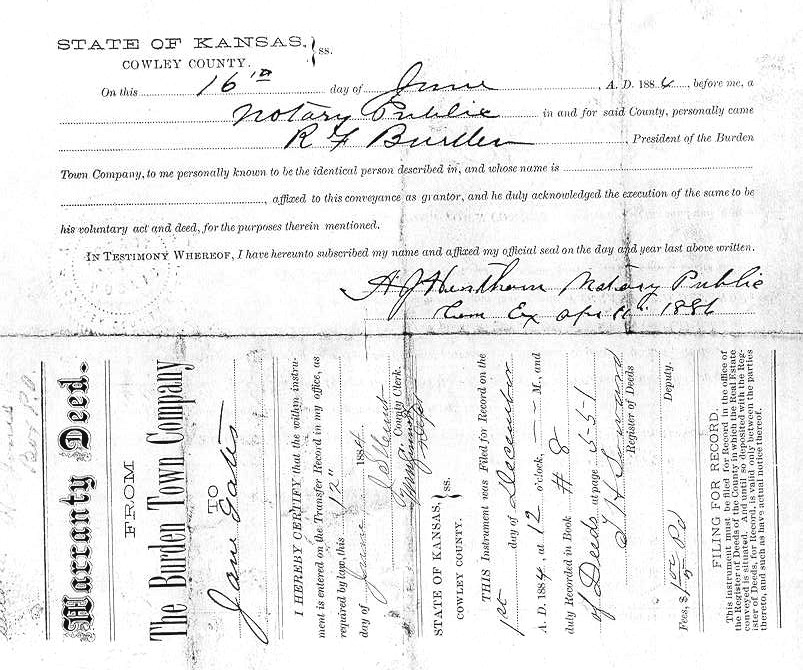 STATE OF KANSAS, } ss.
COWLEY COUNTY.
On this 16th day of June, A. D. 1884, before me, a
Notary Public in and for said County, personally came
R F Burden, President of the Burden
Town Company, to me personally known to be the identical person described in, and whose name is
, affixed to this conveyance as grantor, and he duly acknowledged the execution of the same to be
his voluntary act and deed, for the purposes therein mentioned.
IN TESTIMONY WHEREOF, I have hereunto subscribed my name and affixed my official seal on the day and year last above written.
Notary Public
Com Ex Apr 1886
Warranty Deed.
FROM
The Burden Town Company
TO
Jane Gates
I HEREBY CERTIFY that the within instru-
ment is entered on the Transfer Record in my office, as
required by law, this 12"
day of June 1884
County Clerk.
STATE OF KANSAS, } ss.
COWLEY COUNTY.
THIS Instrument was Filed for Record on the
1st day of December
A. D. 1884, at 12 o'clock, M., and
duly Recorded in Book # 8
of Deeds at page 551
Register of Deeds
Deputy.
Fees, $ Pd
FILING FOR RECORD.
This instrument must be filed for Record in the office of
the Register of Deeds of the County in which the Real Estate
conveyed is situated. And until so deposited with the Reg-
ister of Deeds, for Record, is valid only between the parties
thereto, and such as have actual notice thereof.